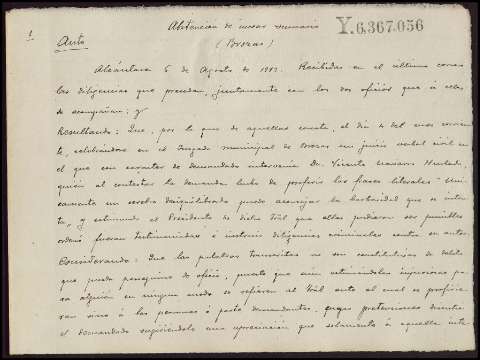 1
Abstención de incoar sumario
Y.6,367,056
Auto
(Brozas)
Alcántara 5 de Agosto de 19 Recibidas en el último correo
las diligencias que preceden, juntamente con los dos oficios que a ellas
se acompañan; y
Resultando: Que, por lo que de aquellas consta, el día 4 del mes corrien-
te, celebrándose en el Juzgado municipal de Brozas un juicio verbal civil en
el que con carácter de demandado intervenía Dn. Vicente Navarro Hurtado,
quien al contestar la demanda hubo de proferir las frases literales "Uni-
camente un cerebro desequilibrado puede aconsejar la barbaridad que se inten-
ta", y estimando el Presidente de dicho Tbal que ellas pudieran ser punibles
ordenó fueran testimoniadas é instruir diligencias criminales contra su autor.
Considerando: Que las palabras transcritas no son constitutivas de delito
que pueda perseguirse de oficio, puesto que aún estimándolas injuriosas pa-
ra alguien en ningun modo se refieren al Tbal ante el cual se profirie-
ran sino á las personas ó parte demandantes, cuyas pretensiones discutía
el demandado sugiriéndole una apreciación que solamente á aquella inte-